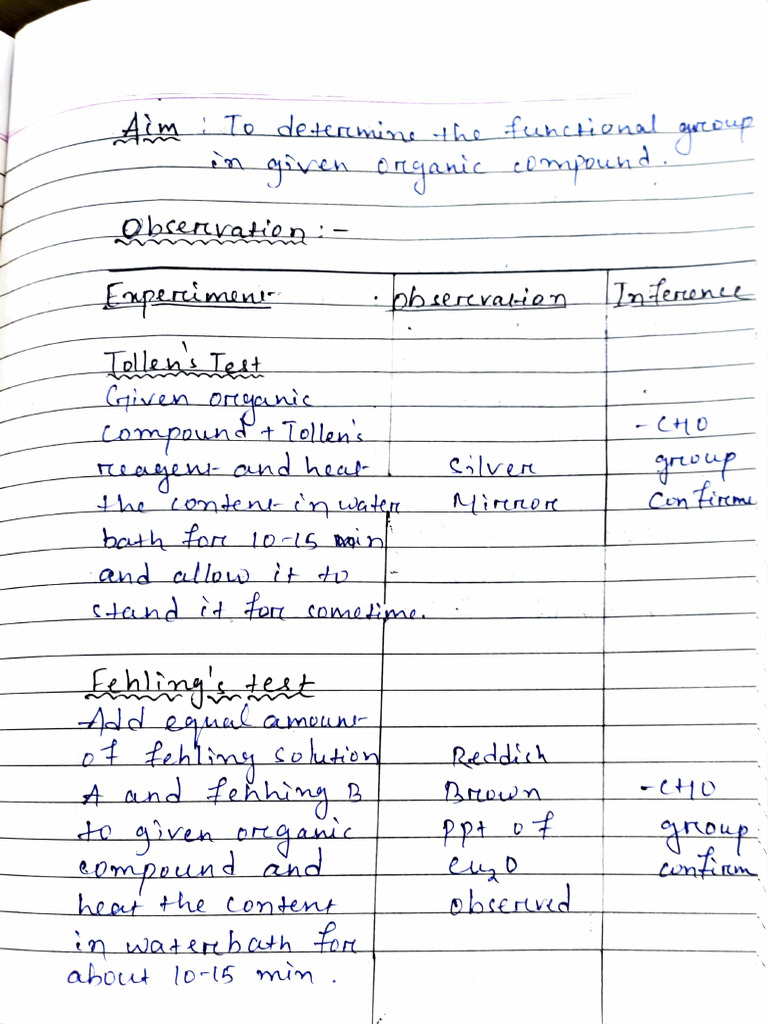 Aim : To determine the functional group
in given organic compound.
Observation :-
Experiment
Observation
Inference
Tollen's Test
Given organic
compound + Tollen's
reagent and heat
the content in water
bath for 10-15 min
and allow it to
stand it for sometime.
Silver
Mirror
- CHO
group
confirm
Fehling's test
Add equal amount
of fehling solution
A and fehhing B
to given organic
compound and
heat the content
in waterbath for
about 10-15 min .
Reddich
Brown
ppt of
Cu₂O
observed
- CHO
group
confirm